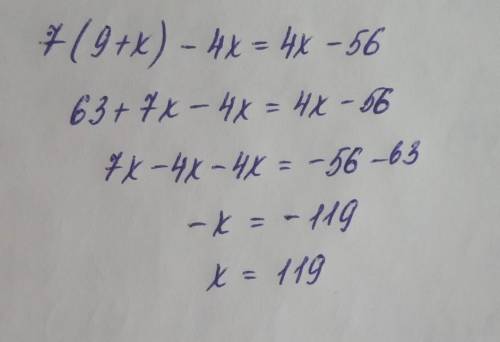 7(9+x) - 4x = 4x - 56
63 + 7x - 4x = 4x - 56
7x - 4x - 4x = -56 - 63
-x = -119
x = 119